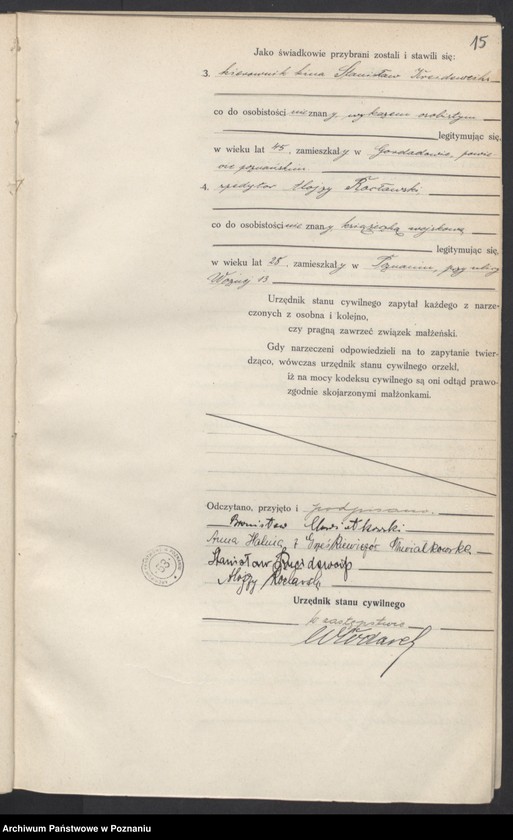 15
Jako świadkowie przybrani zostali i stawili się:
3. kierownik kina Stanisław
co do osobistości nieznany wykazem osobistym
legitymując się,
w wieku lat 45, zamieszkały w powie-
cie poznańskim.
4. spedytor Alojzy
co do osobistości nieznany książeczką wojskową
legitymując się,
w wieku lat 28, zamieszkały w Poznaniu, przy ulicy
Woźnej 13.
Urzędnik stanu cywilnego zapytał każdego z narze-
czonych z osobna i kolejno,
czy pragną zawrzeć związek małżeński.
Gdy narzeczeni odpowiedzieli na to zapytanie twier-
dząco, wówczas urzędnik stanu cywilnego orzekł,
iż na mocy kodeksu cywilnego są oni odtąd prawo-
zgodnie skojarzonymi małżonkami.
Odczytano, przyjęto i podpisano.
Bronisław Kwiatkowski
Anna z Kwiatkowska
Stanisław
Alojzy
Urzędnik stanu cywilnego
w zastępstwie
Włodarek
53
Archiwum Państwowe w Poznaniu